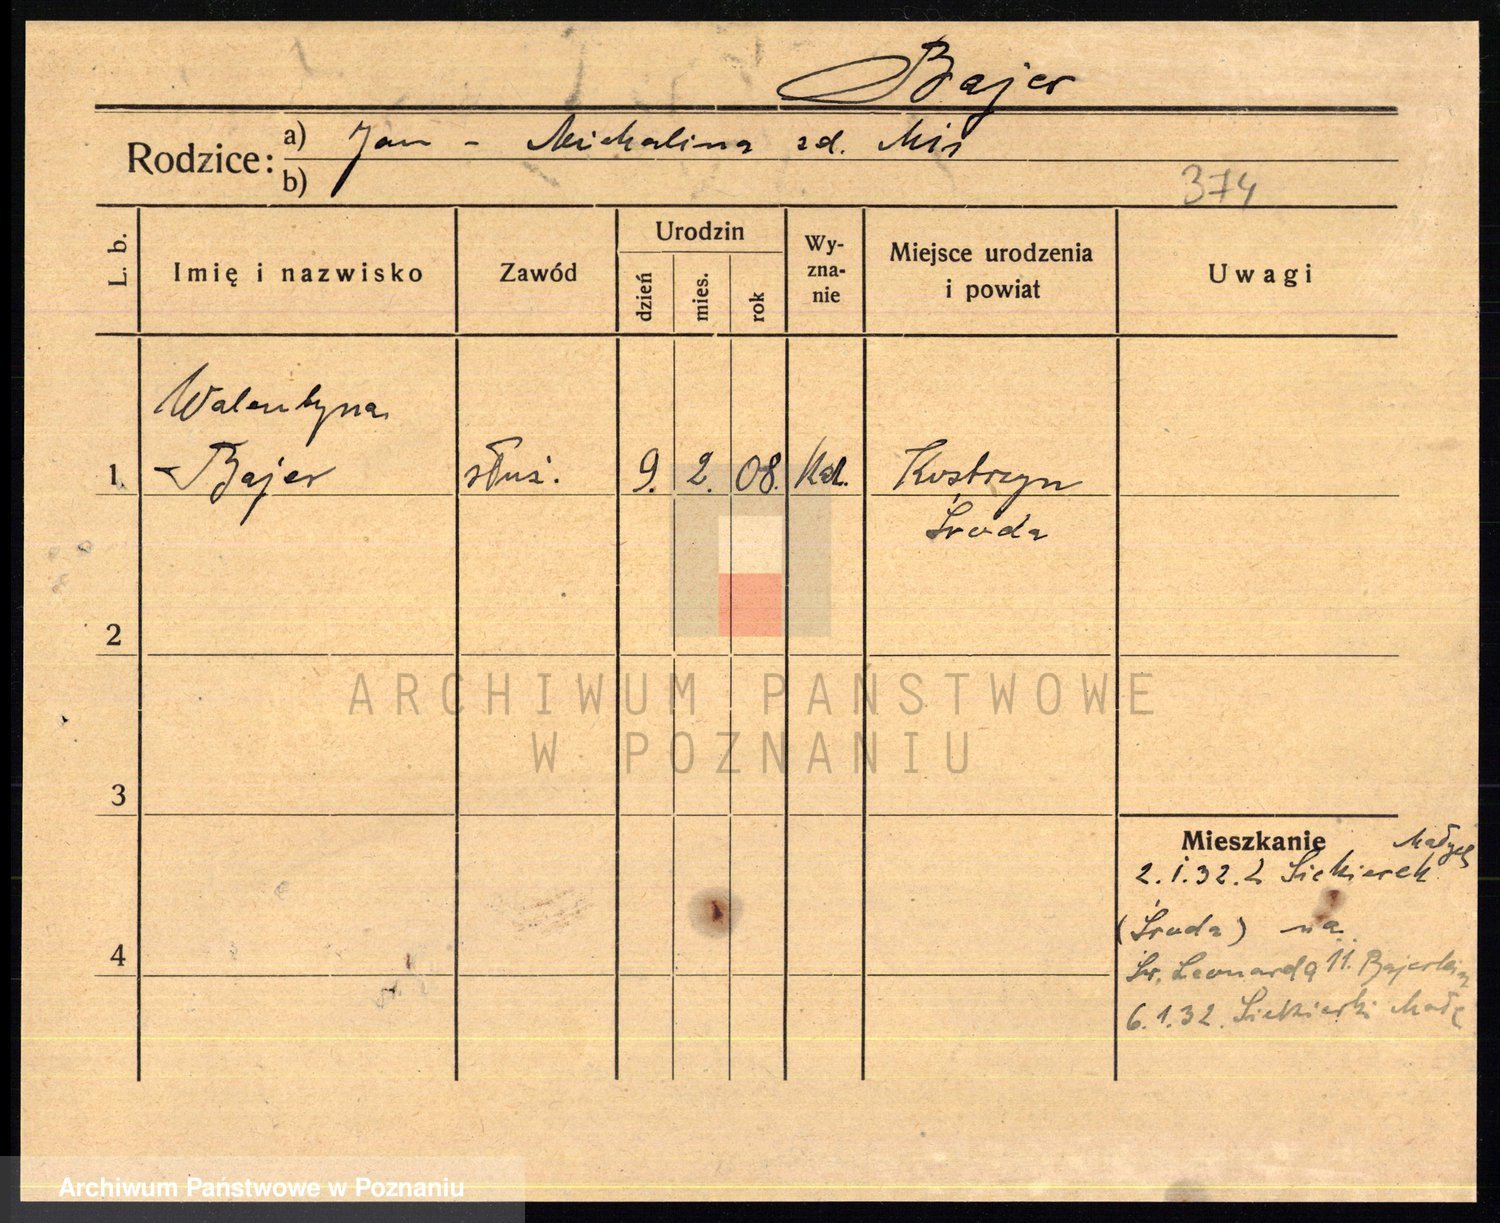 Bajer
Rodzice:
a) Jan - Michalina zd. Mis
b)
374
L. b.
Imię i nazwisko
Zawód
Urodzin
dzień
mies.
rok
Wy-
zna-
nie
Miejsce urodzenia
i powiat
Uwagi
Walentyna
1. Bajer służ. 9. 2. 08. Kat. Kostrzyn
Środa
2
3
4
ARCHIWUM PAŃSTWOWE
W POZNANIU
Mieszkanie
Małych
2.1.32. Z Siekierek
(Środa) na
Św. Leonarda 11.
6.1.32. Siekierki Małe
Archiwum Państwowe w Poznaniu